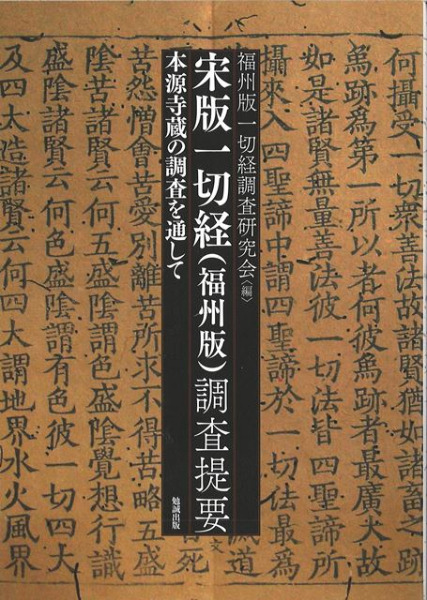 福州版一切経調査研究会〈編〉
宋版一切経(福州版)調査提要
本源寺蔵の調査を通して
勉誠出版
何攝受一切衆善法故猶如諸畜之跡
象跡爲第一所以者何彼象跡者最廣大故
如是諸賢無量善法彼一切法皆四聖諦所
攝來入四聖諦中謂四聖諦於一切法最
苦怨憎會苦愛別離苦所求不得苦略五盛
陰苦諸賢云何五盛陰謂色盛陰覺想行識
盛陰諸賢云何色盛陰謂有色彼一切四大
及四大造諸賢云何四大謂地界水火風界